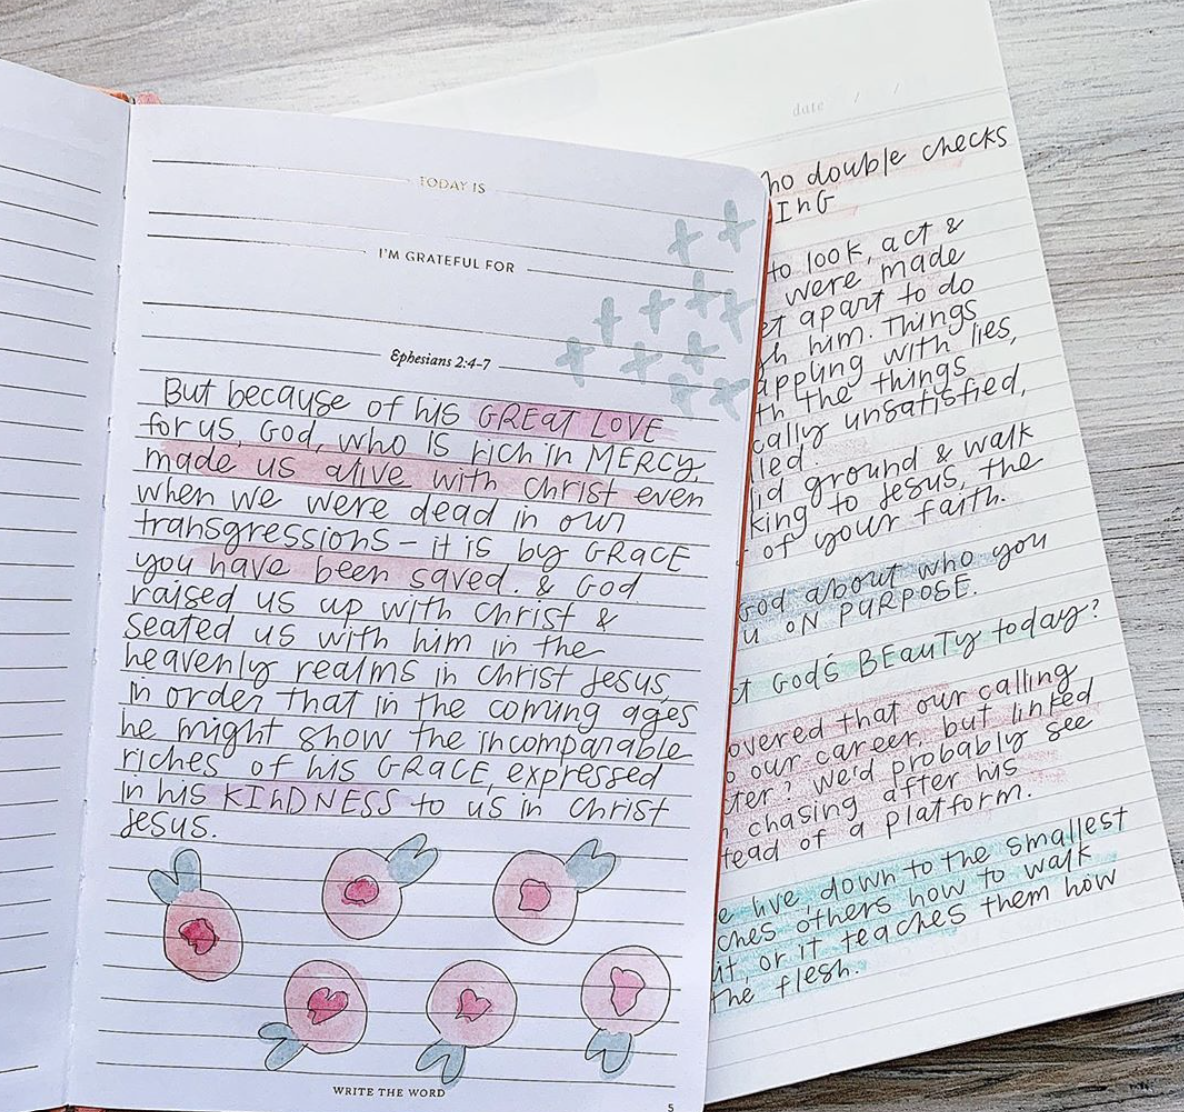 TODAY IS
I'M GRATEFUL FOR
Ephesians 2:4-7
But because of his GREAT LOVE
for us, God, who is rich in MERCY,
made us alive with Christ even
when we were dead in our
transgressions - it is by GRACE
you have been saved. & God
raised us up with Christ &
seated us with him in the
heavenly realms in Christ Jesus,
in order that in the coming ages
he might show the incomparable
riches of his GRACE, expressed
in his KINDNESS to us in Christ
Jesus.
WRITE THE WORD
5
date / /
double checks
to look, act &
were made
apart to do
him. Things
with lies,
the things
unsatisfied,
ground & walk
to Jesus, the
of your faith.
God about who you
ON PURPOSE.
God's BEAUTY today?
that our calling
our career, but linked
? we'd probably see
chasing after his
of a platform.
live, down to the smallest
others how to walk
or it teaches them how
the flesh.